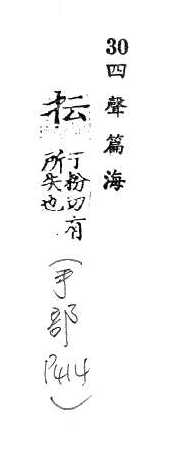 30四聲篇海
抎
丁粉切有
所失也
(手部
P414)